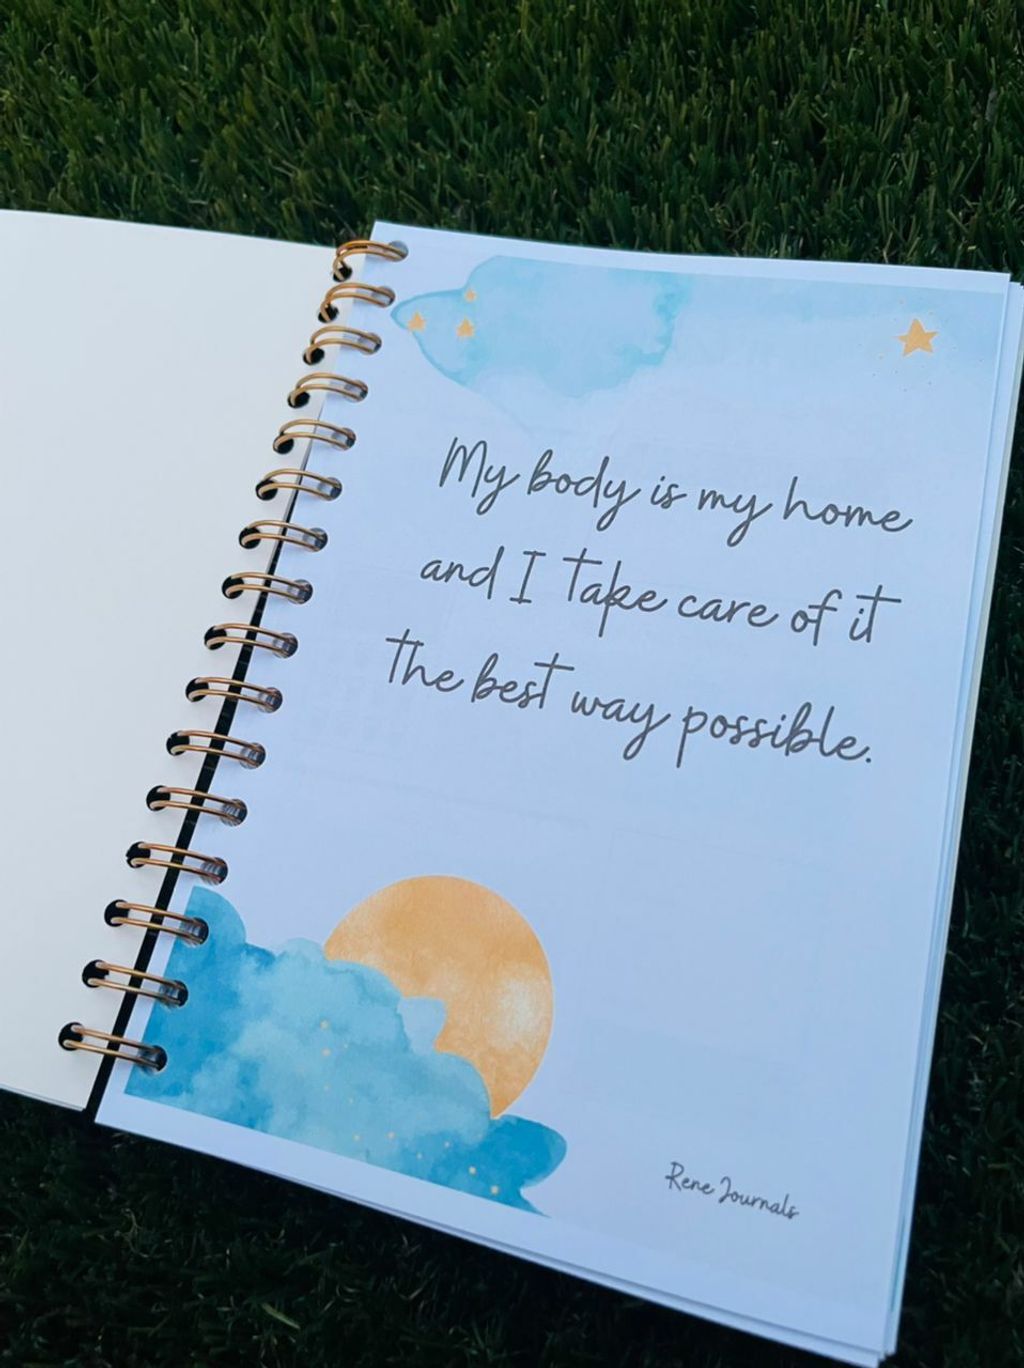 My body is my home
and I take care of it
the best way possible.
Rene Journals